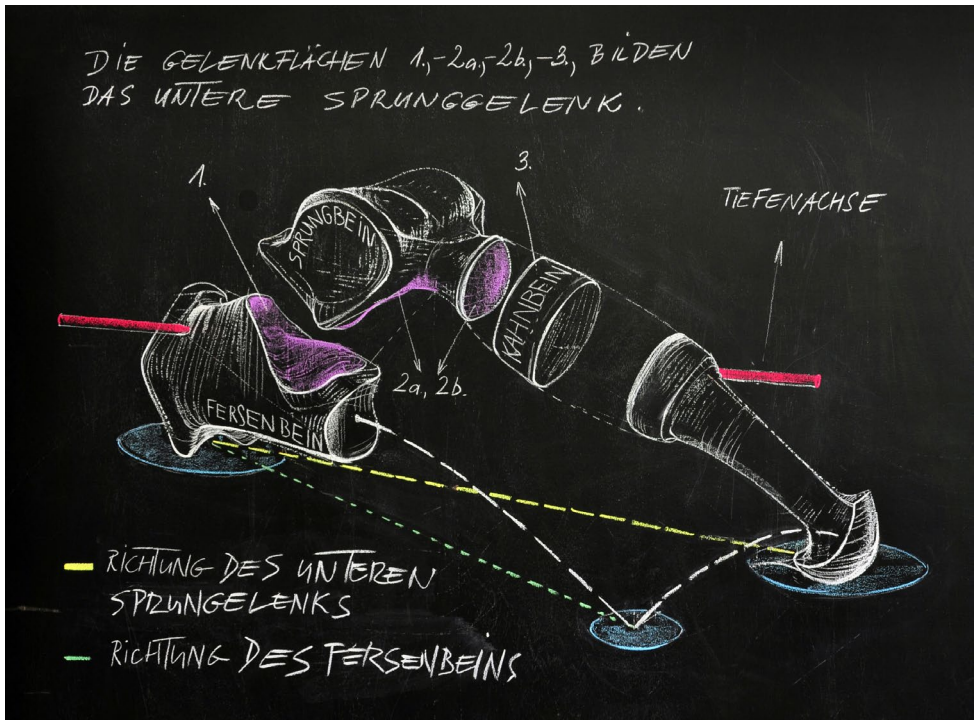 DIE GELENKFLÄCHEN 1,-2a,-2b,-3, BILDEN
DAS UNTERE SPRUNGGELENK.
1.
3.
TIEFENACHSE
SPRUNGBEIN
KAHNBEIN
2a, 2b.
FERSENBEIN
RICHTUNG DES UNTEREN
SPRUNGELENKS
RICHTUNG DES FERSENBEINS